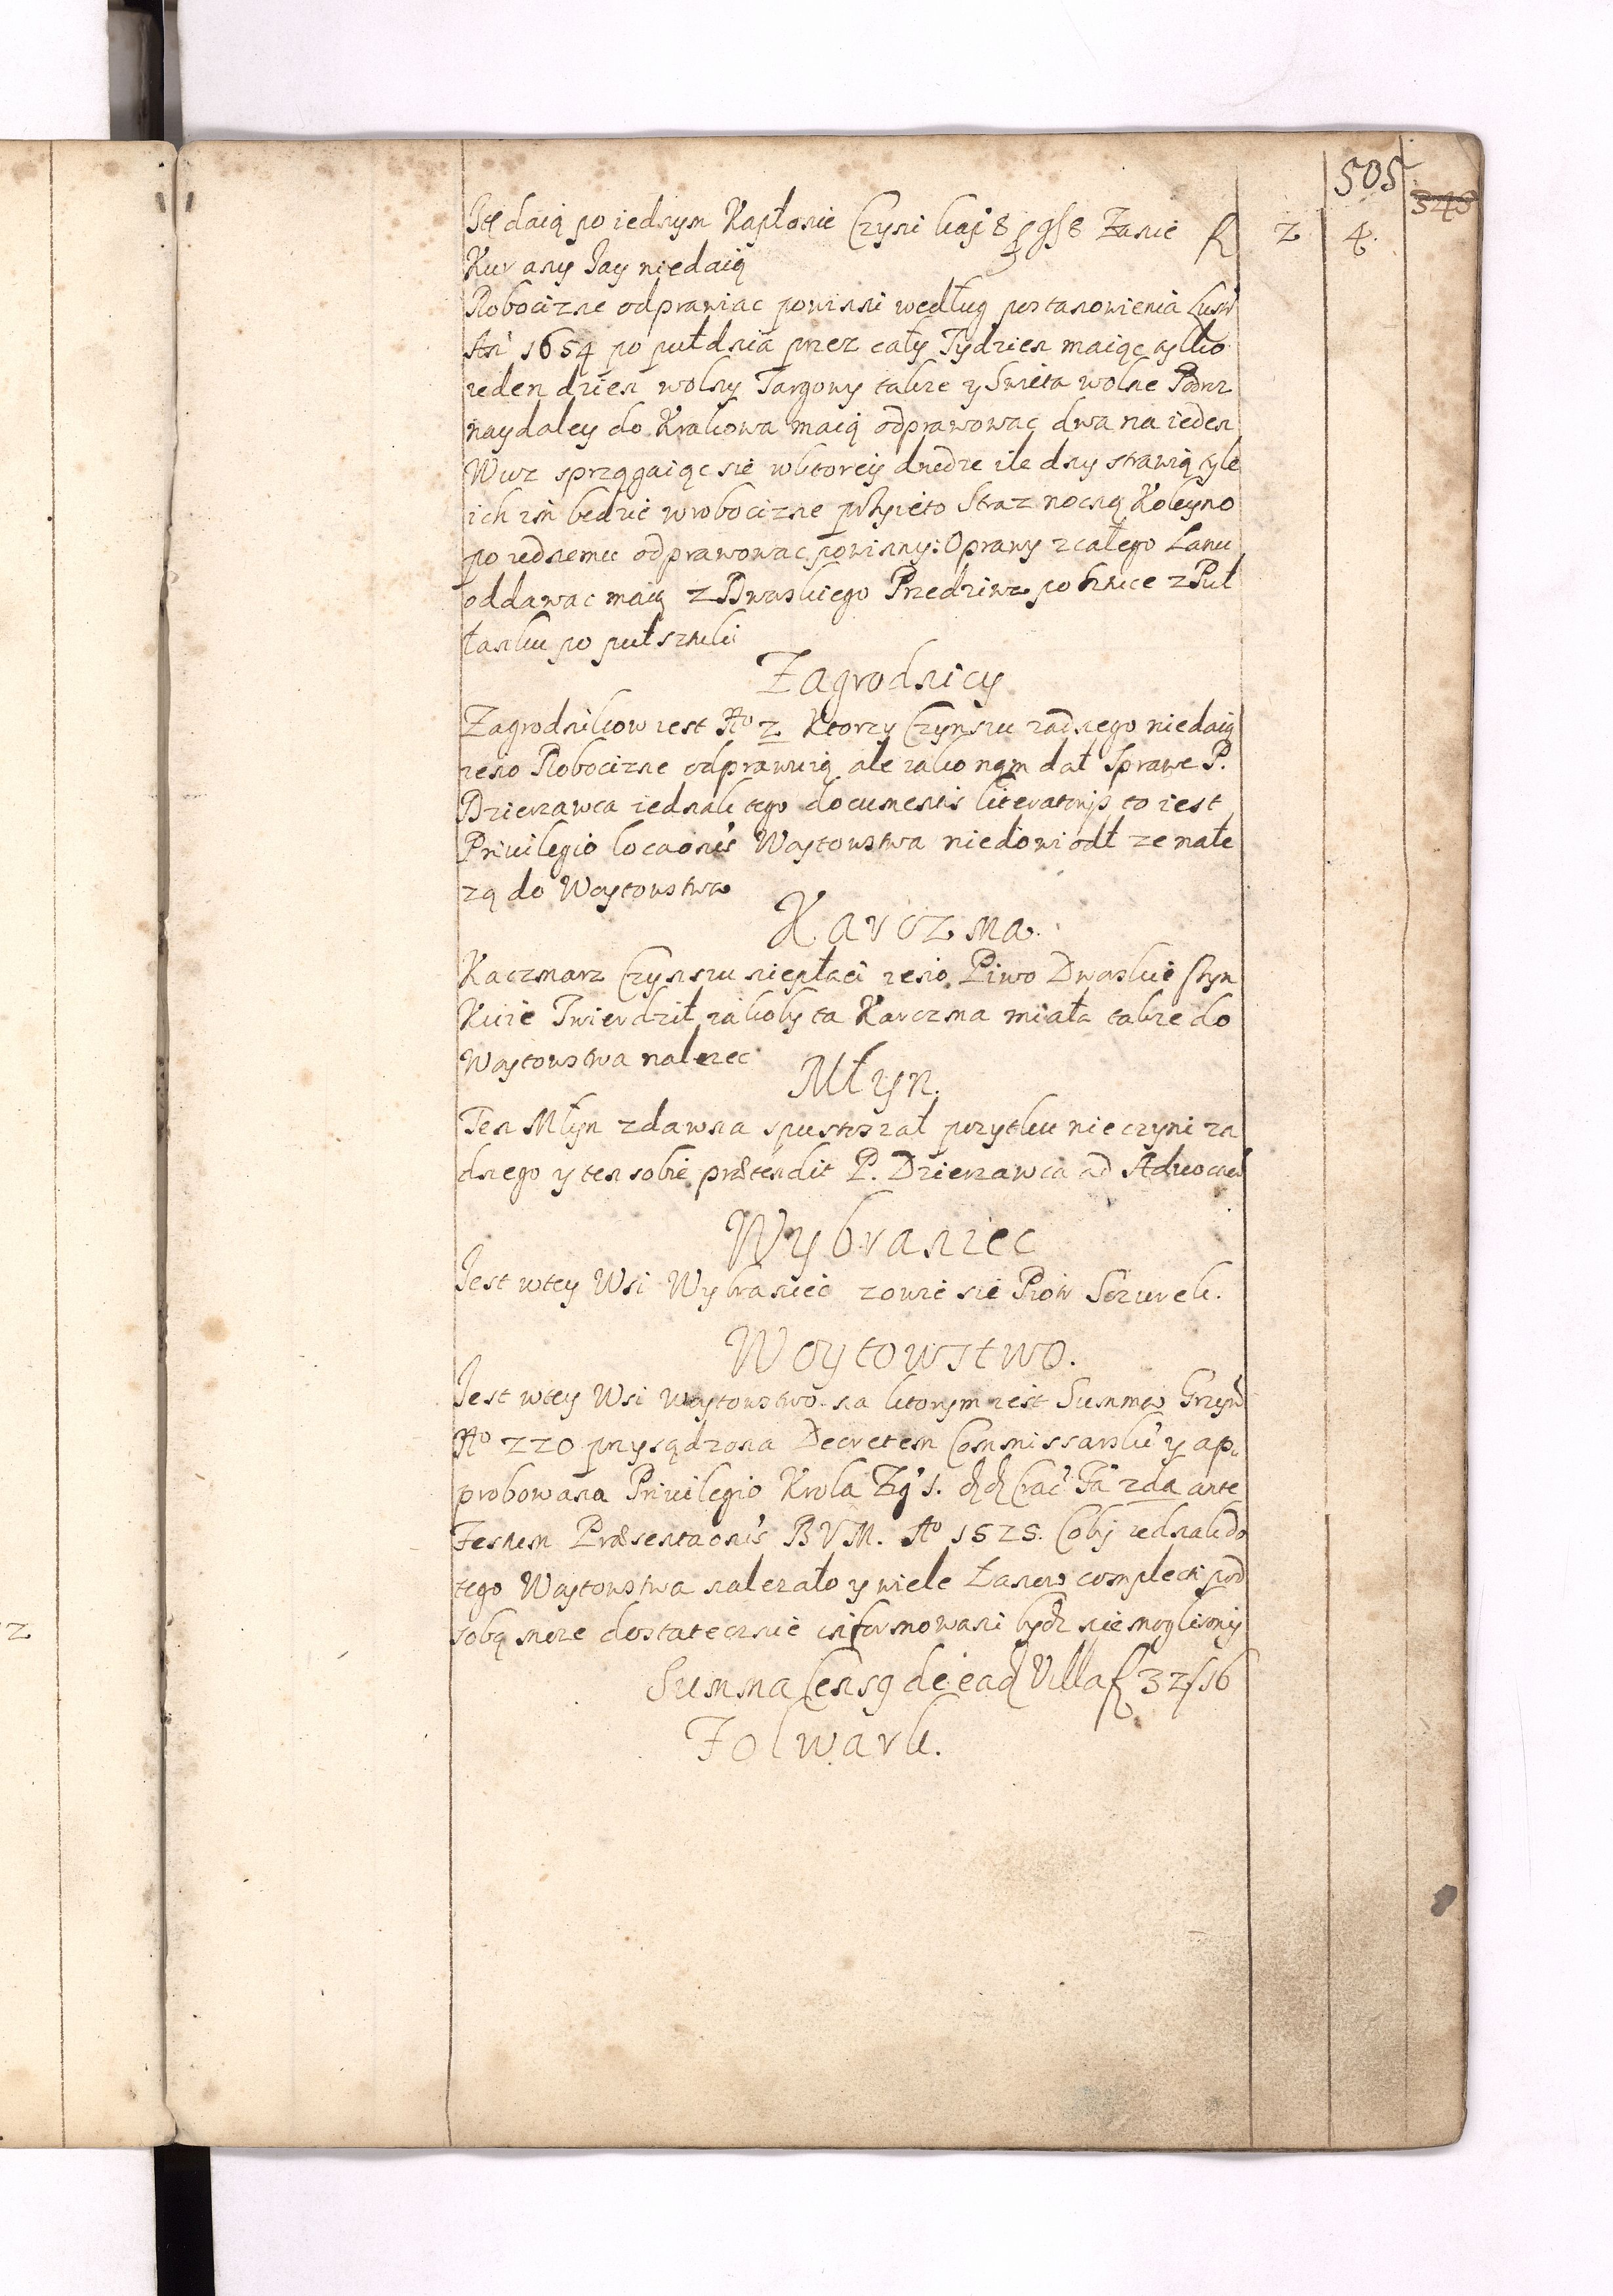 505
343
Itē daią po iednym Kapłonie Czyni kap 8 p g 8 Zanie f 2 4.
Kur any Jay niedaią
Robocizne odprawiac powinni według postanowienia Lustr
An 1654 po puł dnia przez cały Tydzien maiąc tylko
ieden dzien wolny Targowy takze y Swieta wolne Podroz
naydaley do Krakowa maią odprawowac dwa na ieden
Wuz sprzągaiąc sie w ktorey drodze ile dny strawią tyle
ich im bedzie w robocizne przyieto Straz nocną Koleyno
po iednemu odprawowac powinny: Oprawy z całego Lanu
oddawac maią z Dworskiego Przedziwa po sztuce z Puł
łanku po puł sztuki
Zagrodnicy
Zagrodnikow iest No 2 Ktorzy Czynszu zadnego niedaią
ieno Robocizne odprawuią ale iako nąm dał Sprawe P.
Dzierzawca iednak tego documentis literatorijs to iest
Priuilegio locaonis Woytowstwa niedowiodł ze nale
zą do Woytowstwa
Karczma.
Kaczmarz Czynszu niepłaci ieno Piwo Dworskie szyn
Kuie Twierdził iakoby ta Karczma miała takze do
Woytowstwa nalezec
Młyn.
Ten Młyn zdawna spustoszał pozytku nie czyni za
dnego y ten sobie prætendit P. Dzierzawca ad Aduocat
Wybraniec
Jest w tey Wsi Wybraniec zowie sie Piotr Sczurek.
Woytowstwo.
Jest w tey Wsi Woytowstwo na ktorym iest Summa Grzywd
No 220 przysądzona Decretem Commissarski y ap
probowana Priuilegio Krola Zyg 1. Crac Fa 2da ante
Festum Præsentaonis B V M. Ao 1525. Coby iednak do
tego Woytowstwa nalezało y wiele Lanow complecti pod
sobą moze dostatecznie informowani bydz nie moglismy
Summa Censg de ead Villa f 32/16
Folwark.